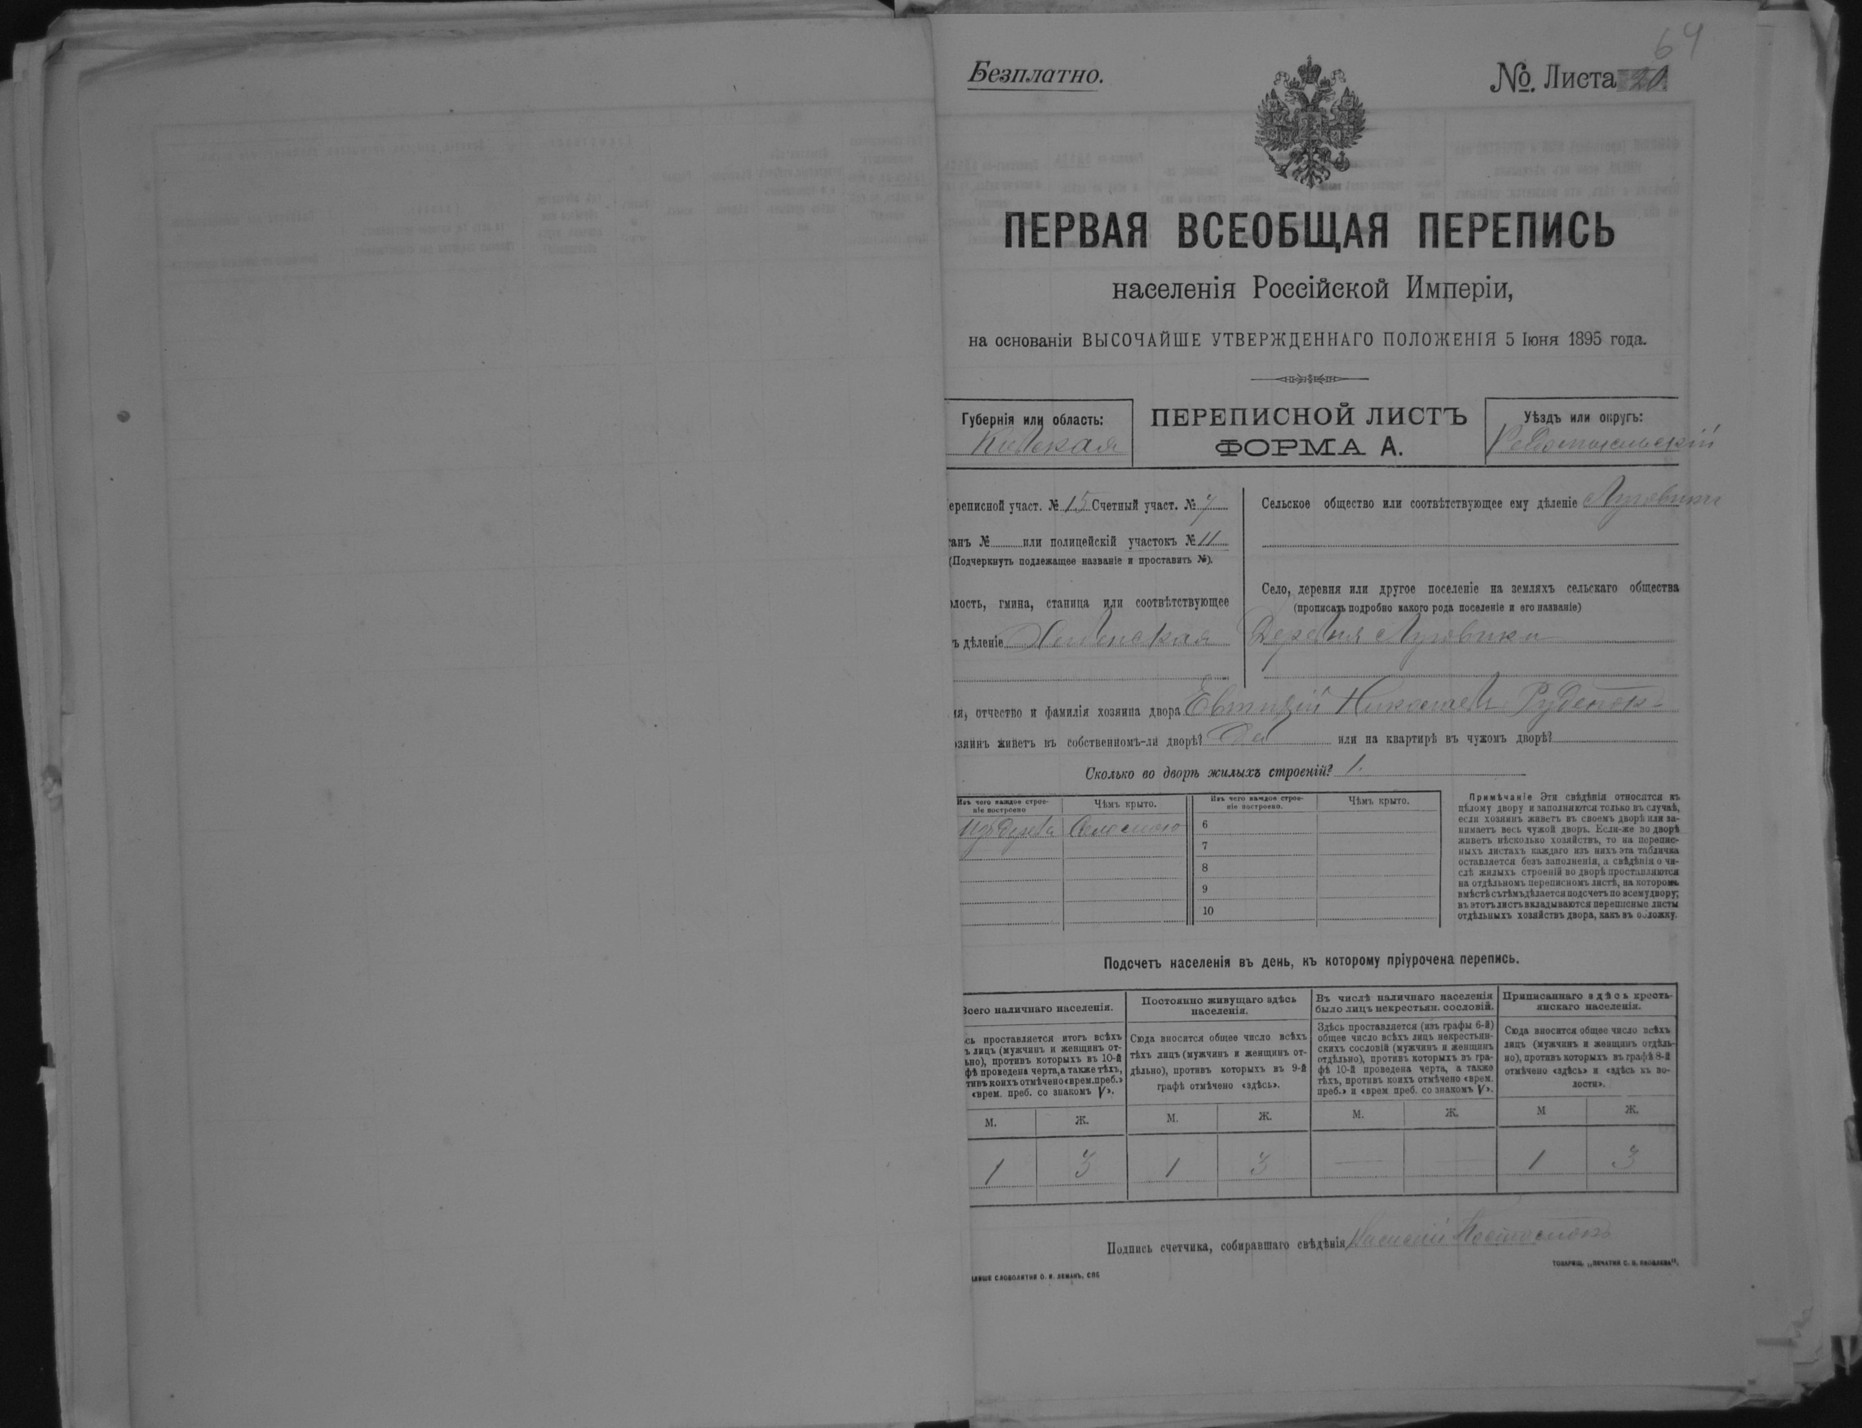 64
Безплатно.
№. Листа 20
ПЕРВАЯ ВСЕОБЩАЯ ПЕРЕПИСЬ
населенія Россійской Имперіи,
на основаніи ВЫСОЧАЙШЕ УТВЕРЖДЕННАГО ПОЛОЖЕНІЯ 5 Іюня 1895 года.
Губернія или область:
Кіевская
ПЕРЕПИСНОЙ ЛИСТЪ
ФОРМА А.
Уѣздъ или округъ:
Радомысльскій
ереписной участ. № 15 Счетный участ. № 7
танъ № или полицейскій участокъ № 11
(Подчеркнуть подлежащее названіе и проставить №).
лость, гмина, станица или соотвѣтствующее
ъ дѣленіе
Сельское общество или соотвѣтствующее ему дѣленіе Луговики
Село, деревня или другое поселеніе на земляхъ сельскаго общества
(прописать подробно какого рода поселеніе и его названіе)
Деревня Луговики
ия, отчество и фамилія хозяина двора Евтихій Николаевъ Руденок
озяинъ живетъ въ собственномъ-ли дворѣ? или на квартирѣ въ чужомъ дворѣ?
Сколько во дворѣ жилыхъ строеній? 1.
Изъ чего каждое строе-
ніе построено
Чѣмъ крыто.
Изъ дерева Соломою
Изъ чего каждое строе-
ніе построено.
Чѣмъ крыто.
6
7
8
9
10
Примѣчаніе Эти свѣдѣнія относятся къ
цѣлому двору и заполняются только въ случаѣ,
если хозяинъ живетъ въ своемъ дворѣ или за-
нимаетъ весь чужой дворъ. Если-же во дворѣ
живетъ нѣсколько хозяйствъ, то на перепис-
ныхъ листахъ каждаго изъ нихъ эта табличка
оставляется безъ заполненія, а свѣдѣнія о чи-
слѣ жилыхъ строеній во дворѣ проставляются
на отдѣльномъ переписномъ листѣ, на которомъ
вмѣстѣ съ тѣмъ дѣлается подсчетъ по всему двору;
въ этотъ листъ вкладываются переписные листы
отдѣльныхъ хозяйствъ двора, какъ въ обложку.
Подсчетъ населенія въ день, къ которому пріурочена перепись.
Всего наличнаго населенія.
сь проставляется итогъ всѣхъ
ъ лицъ (мужчинъ и женщинъ от-
ьно), противъ которыхъ въ 10-й
фѣ проведена черта, а также тѣхъ,
тивъ коихъ отмѣчено «врем. преб.»
«врем. преб. со знакомъ V».
М. Ж.
1 3
Постоянно живущаго здѣсь
населенія.
Сюда вносится общее число всѣхъ
тѣхъ лицъ (мужчинъ и женщинъ от-
дѣльно), противъ которыхъ въ 9-й
графѣ отмѣчено «здѣсь».
М. Ж.
1 3
Въ числѣ наличнаго населенія
было лицъ некрестьян. сословій.
Здѣсь проставляется (изъ графы 6-й)
общее число всѣхъ лицъ некрестьян-
скихъ сословій (мужчинъ и женщинъ
отдѣльно), противъ которыхъ въ гра-
фѣ 10-й проведена черта, а также
тѣхъ, противъ коихъ отмѣчено «врем.
преб.» и «врем преб. со знакомъ V».
М. Ж.
— —
Приписаннаго здѣсь кресть-
янскаго населенія.
Сюда вносится общее число всѣхъ
лицъ (мужчинъ и женщинъ отдѣль-
но), противъ которыхъ въ графѣ 8-й
отмѣчено «здѣсь» и «здѣсь въ во-
лости».
М Ж.
1 3
Подпись счетчика, собиравшаго свѣдѣнія
СЛОВОЛИТНИ О. И. ЛЕМАНЪ, СПБ
ТОВАРИЩ. „ПЕЧАТНЯ С. П. ЯКОВЛЕВА".